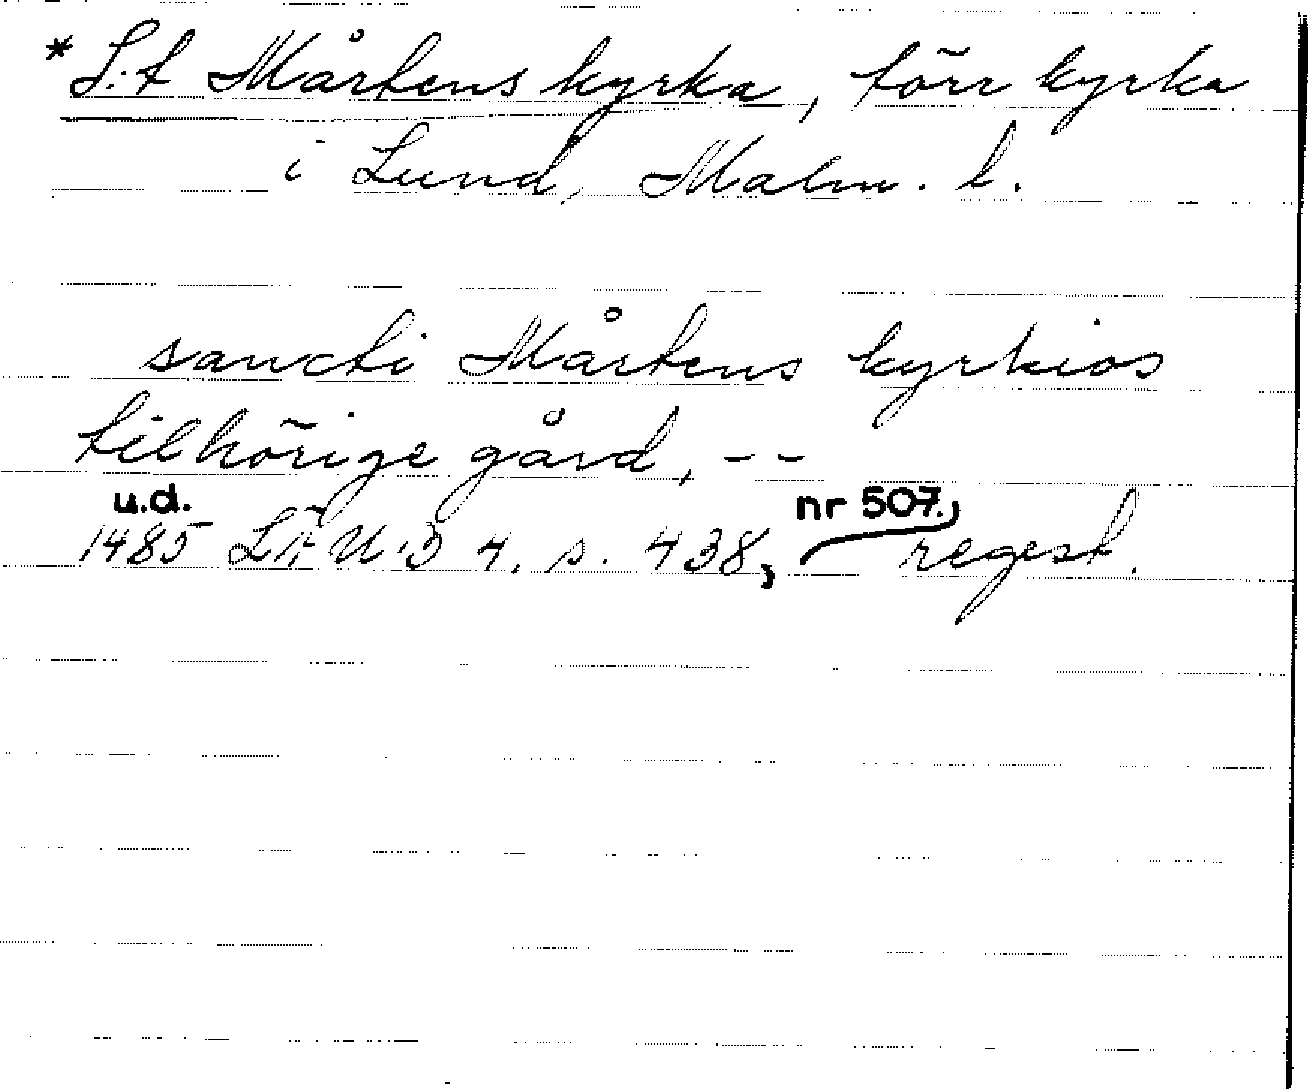 * S:t Mårtens kyrka, förr kyrka
i Lund, Malm. l.
sancti Mårtens kyrkios
tilhörige gård, --
u.d. nr 507.
1485 LÄU:B 4, s. 438, regest.